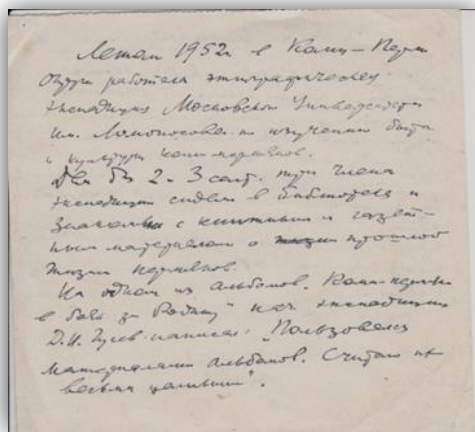 Летом 1952г. в Коми-Перм
округе работала этнографическая
экспедиция Московского Университета
им. Ломоносова по изучению быта
и культуры коми-пермяков.
2 3 сент. три члена
экспедиции сидели в библиотеке и
с книжным и газет-
ным материалом о прошлой
жизни пермяков.
На одном из альбомов "Коми-пермяки
в боях за Родину" нач экспедиции
Д.И. Гусев написал: "Пользовался
материалами альбомов. Считаю их
весьма ценными".